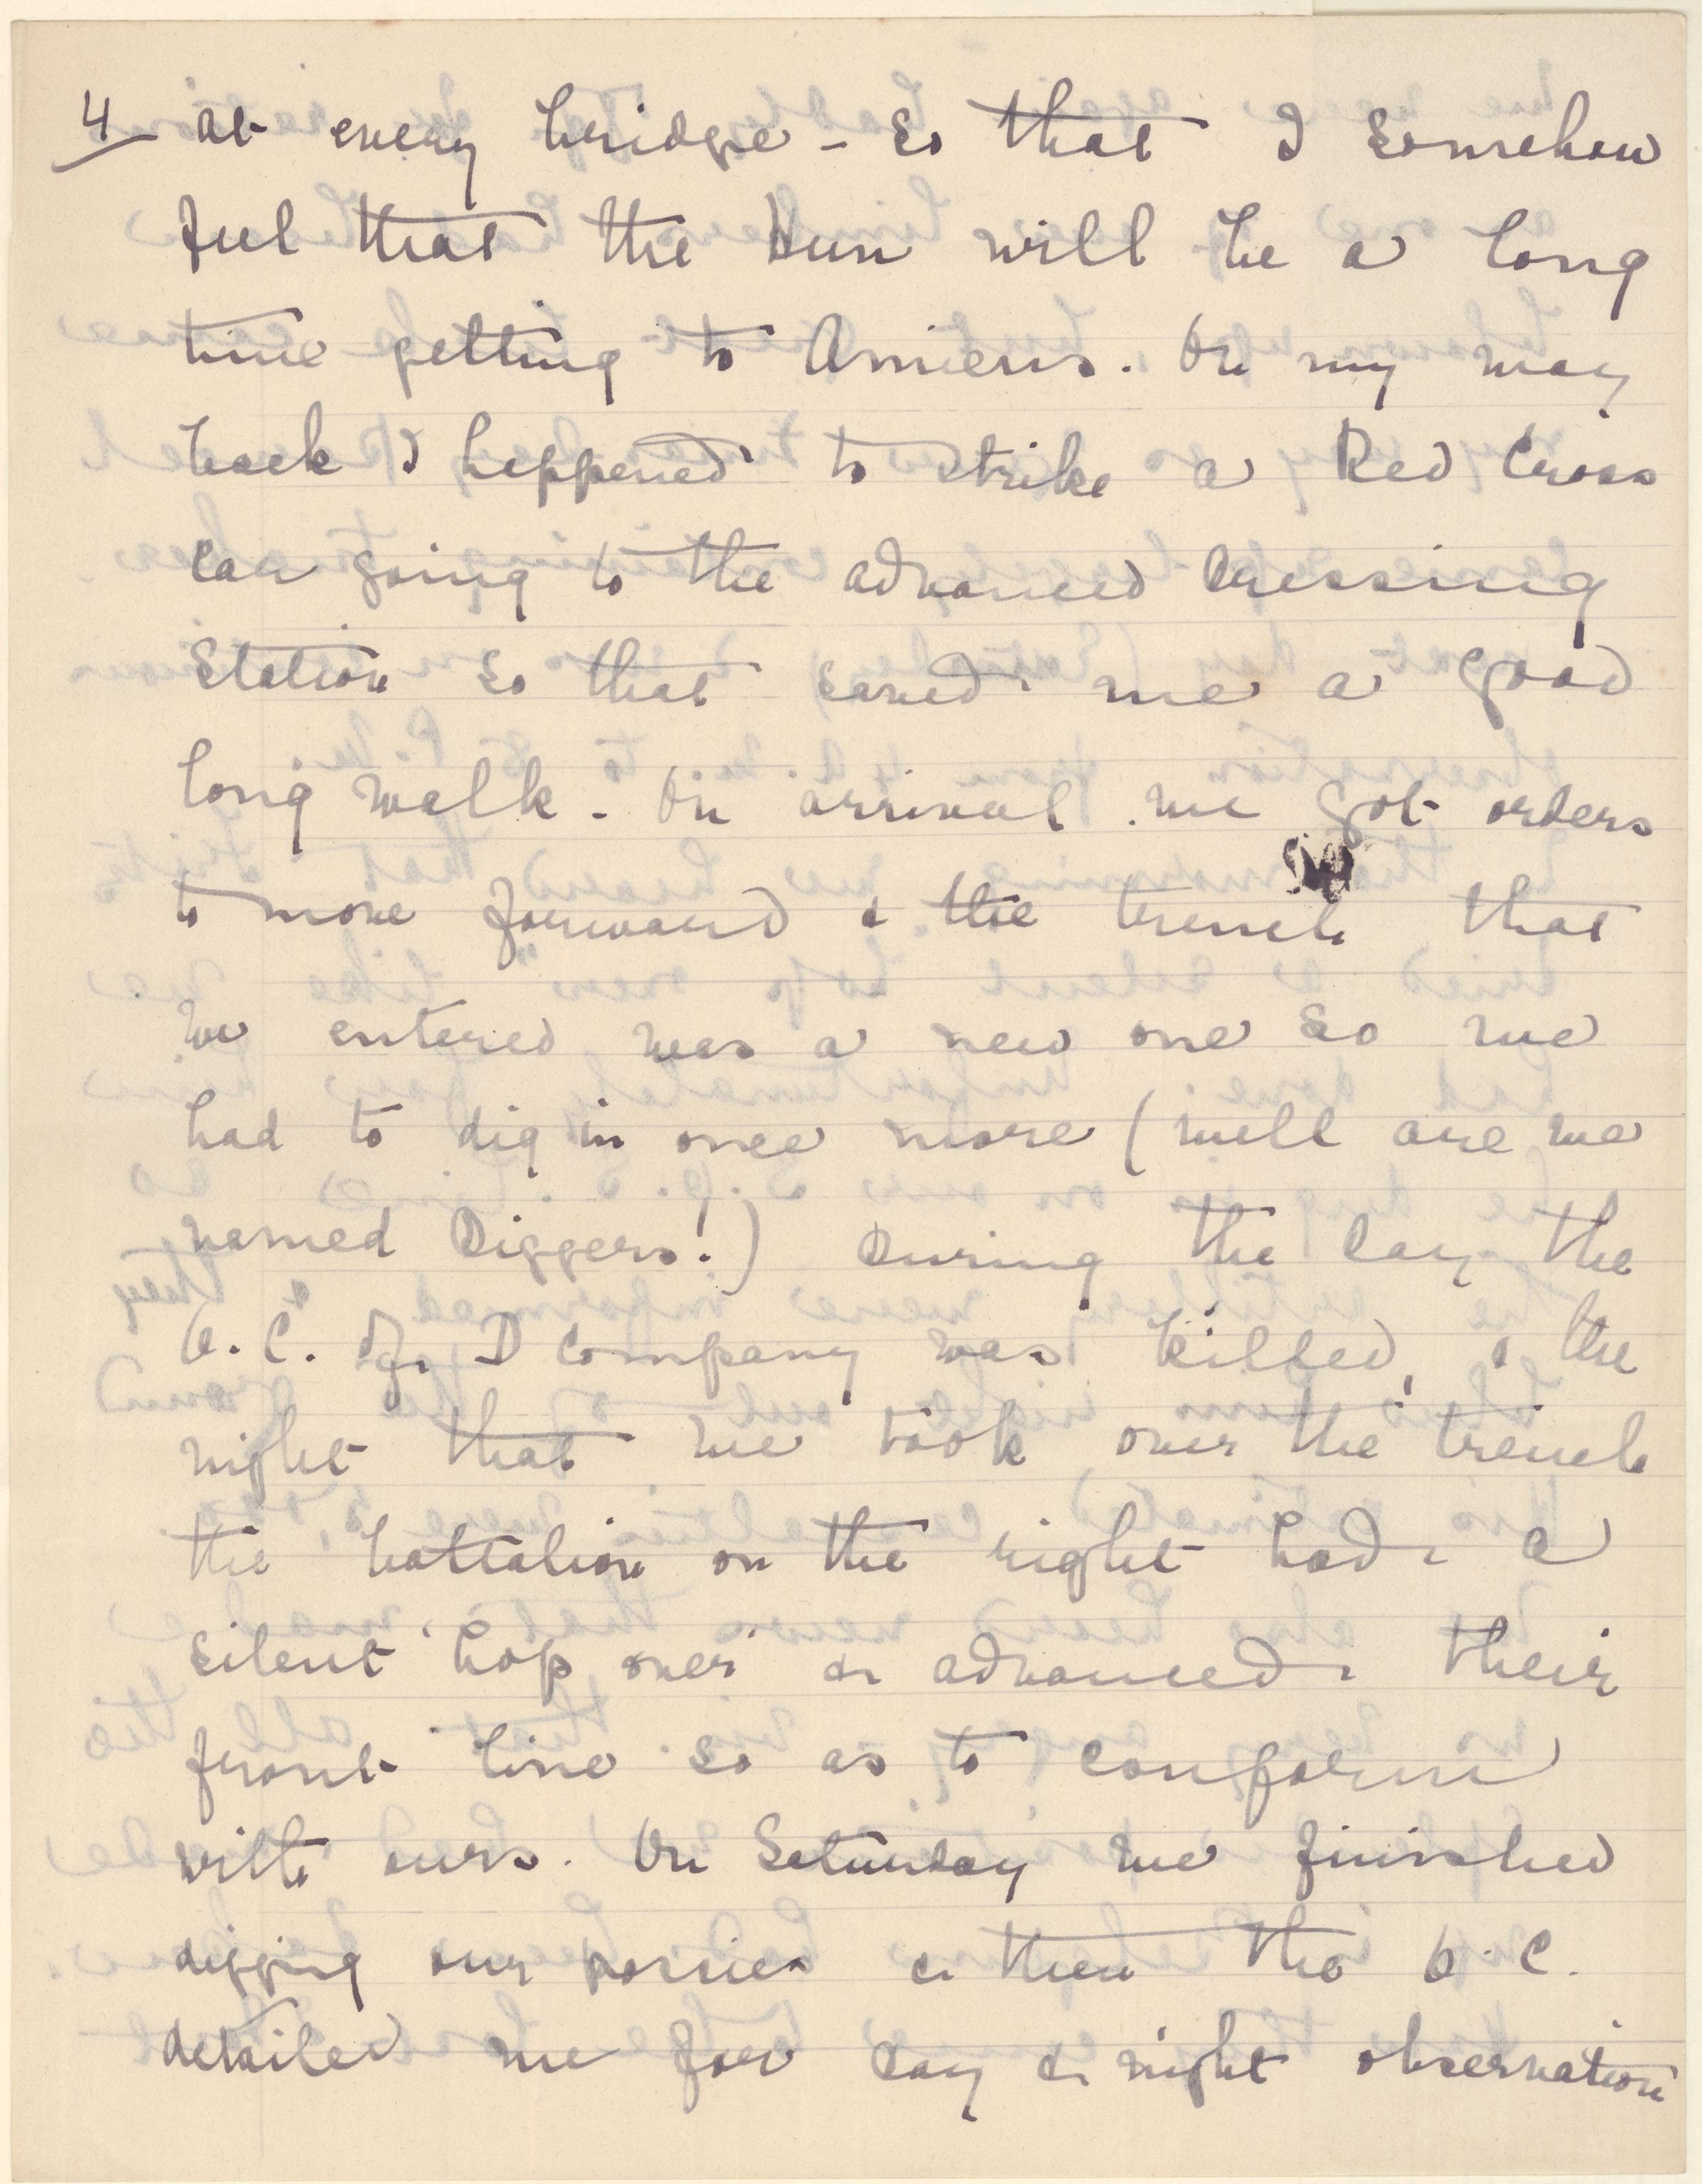 4/ at every bridge - so that I somehow
feel that the Hun will be a long
time getting to Amiens. On my way
back I happened to strike a Red Cross
car going to the advanced dressing
station so that saved me a good
long walk. On arrival we got orders
to move forward & the trench that
we entered was a new one so we
had to dig in once more (well are we
named Diggers!) During the day the
O.C. of D Company was killed, & the
night that we took over the trench
the battalion on the right had a
silent 'hop over' & advanced their
front line so as to conform
with ours. On Saturday we finished
digging our possies & then the O.C.
detailed me for day & night observation